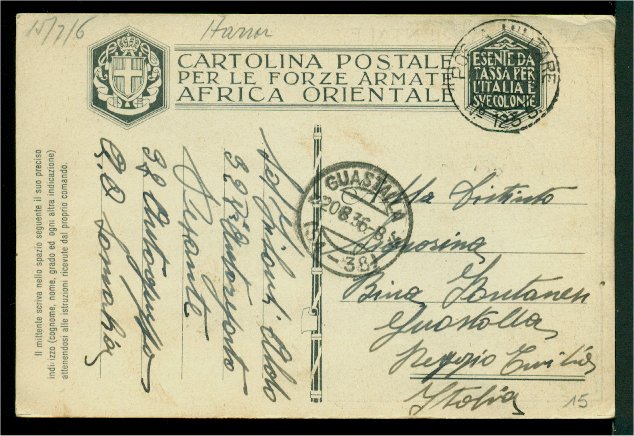 15/7/6
Harrar
CARTOLINA POSTALE
PER LE FORZE ARMATE
AFRICA ORIENTALE
ESENTE DA
TASSA PER
L'ITALIA E
SVE COLONIE
POSTA MILITARE
N° 123 S
Il mittente scriva nello spazio seguente il suo preciso
indirizzo (cognome, nome, grado ed ogni altra indicazione)
attenendosi alle istruzioni ricevute dal proprio comando.
Aldo
3° Autoreparto
32 Autogruppo
Somalia
GUASTALLA
20.8.36.8
Alla Distinta
Signorina
Bina Fontanesi
Guastalla
Reggio Emilia
Italia
15